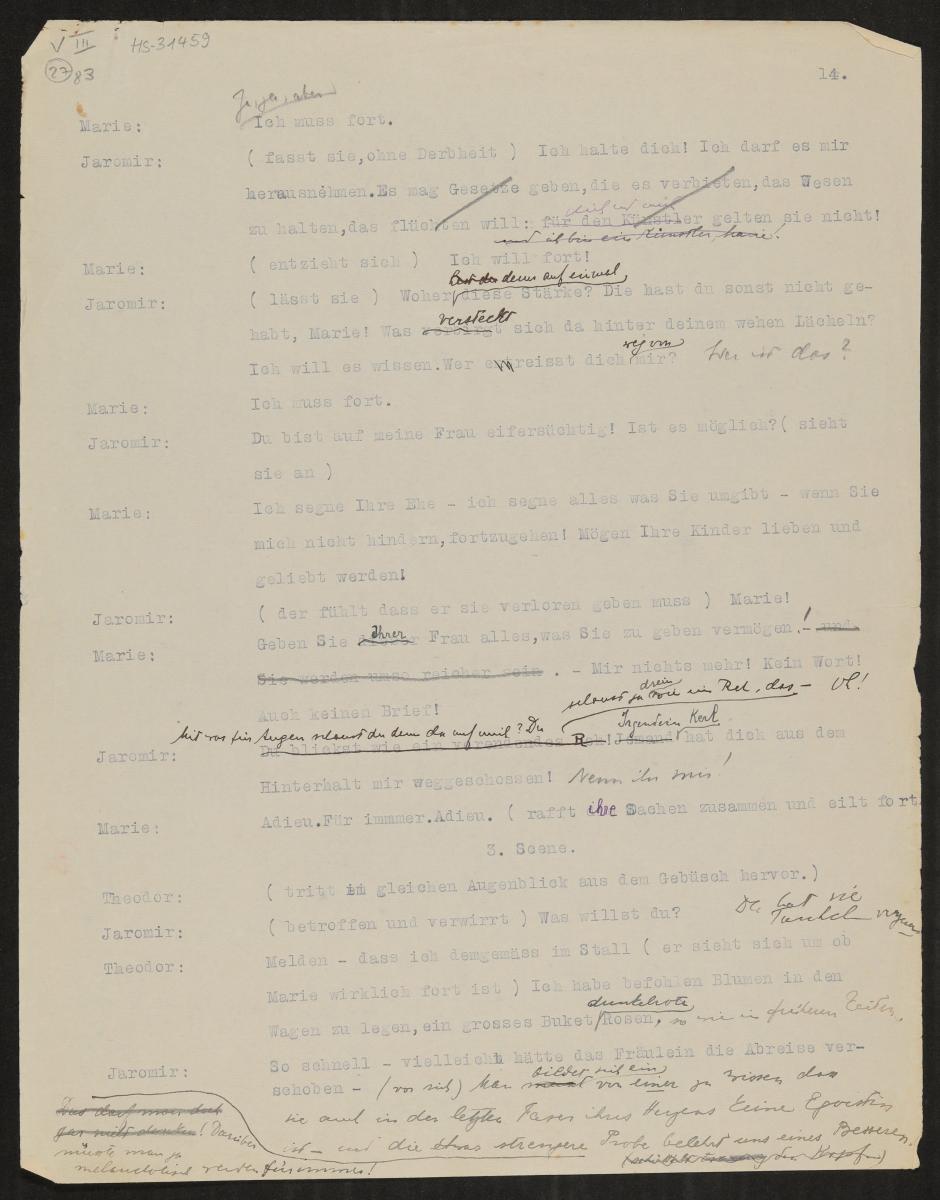 V III HS-31459
27 83
14.
Ja, ja, aber
Marie: Ich muss fort.
Jaromir: ( fasst sie,ohne Derbheit ) Ich halte dich! Ich darf es mir
herausnehmen.Es mag Gesetze geben,die es verbieten,das Wesen
dich und mich
zu halten,das flüchten will: für den Künstler gelten sie nicht!
und ich bin ein Künstler,
Marie: ( entzieht sich ) Ich will fort!
denn auf einmal
Jaromir: ( lässt sie ) Woher diese Stärke? Die hast du sonst nicht ge-
versteckt
habt, Marie! Was verbirgt sich da hinter deinem wehen Lächeln?
weg von
Ich will es wissen.Wer entreisst dich mir? Wer ist das?
Marie: Ich muss fort.
Jaromir: Du bist auf meine Frau eifersüchtig! Ist es möglich?( sieht
sie an )
Marie: Ich segne Ihre Ehe - ich segne alles was Sie umgibt - wenn Sie
mich nicht hindern,fortzugehen! Mögen Ihre Kinder lieben und
geliebt werden!
Jaromir: ( der fühlt dass er sie verloren geben muss ) Marie!
Ihrer
Marie: Geben Sie dieser Frau alles,was Sie zu geben vermögen! - und
Sie werden umso reicher sein . - Mir nichts mehr! Kein Wort!
drein
schaust ja wie ein Reh, das - Oh!
Auch keinen Brief!
Mit was für Augen schaust du denn da auf mich? Du
Irgendein Kerl
Jaromir: Du blickst wie ein verendendes Reh!Jemand hat dich aus dem
Hinterhalt mir weggeschossen! Nenn ihn mir!
Marie: Adieu.Für immmer.Adieu. ( rafft ihre Sachen zusammen und eilt fort
3. Scene.
Theodor: ( tritt im gleichen Augenblick aus dem Gebüsch hervor.)
Jaromir: ( betroffen und verwirrt ) Was willst du?
Da hat sie
Theodor: Melden - dass ich demgemäss im Stall ( er sieht sich um ob
Marie wirklich fort ist ) Ich habe befohlen Blumen in den
dunkelrote
Wagen zu legen,ein grosses Buket Rosen, so wie in früheren Zeiten.
Jaromir: So schnell - vielleicht hätte das Fräulein die Abreise ver-
bildet sich ein
schoben - (vor sich) Man von einer zu wissen dass
sie auch in der letzten Faser ihres Herzens keine Egoistin
ist - und die etwas strengere Probe belehrt uns eines Besseren.
Das darf man doch
gar nicht denken! Darüber
müsste man ja
melancholisch werden für immer!